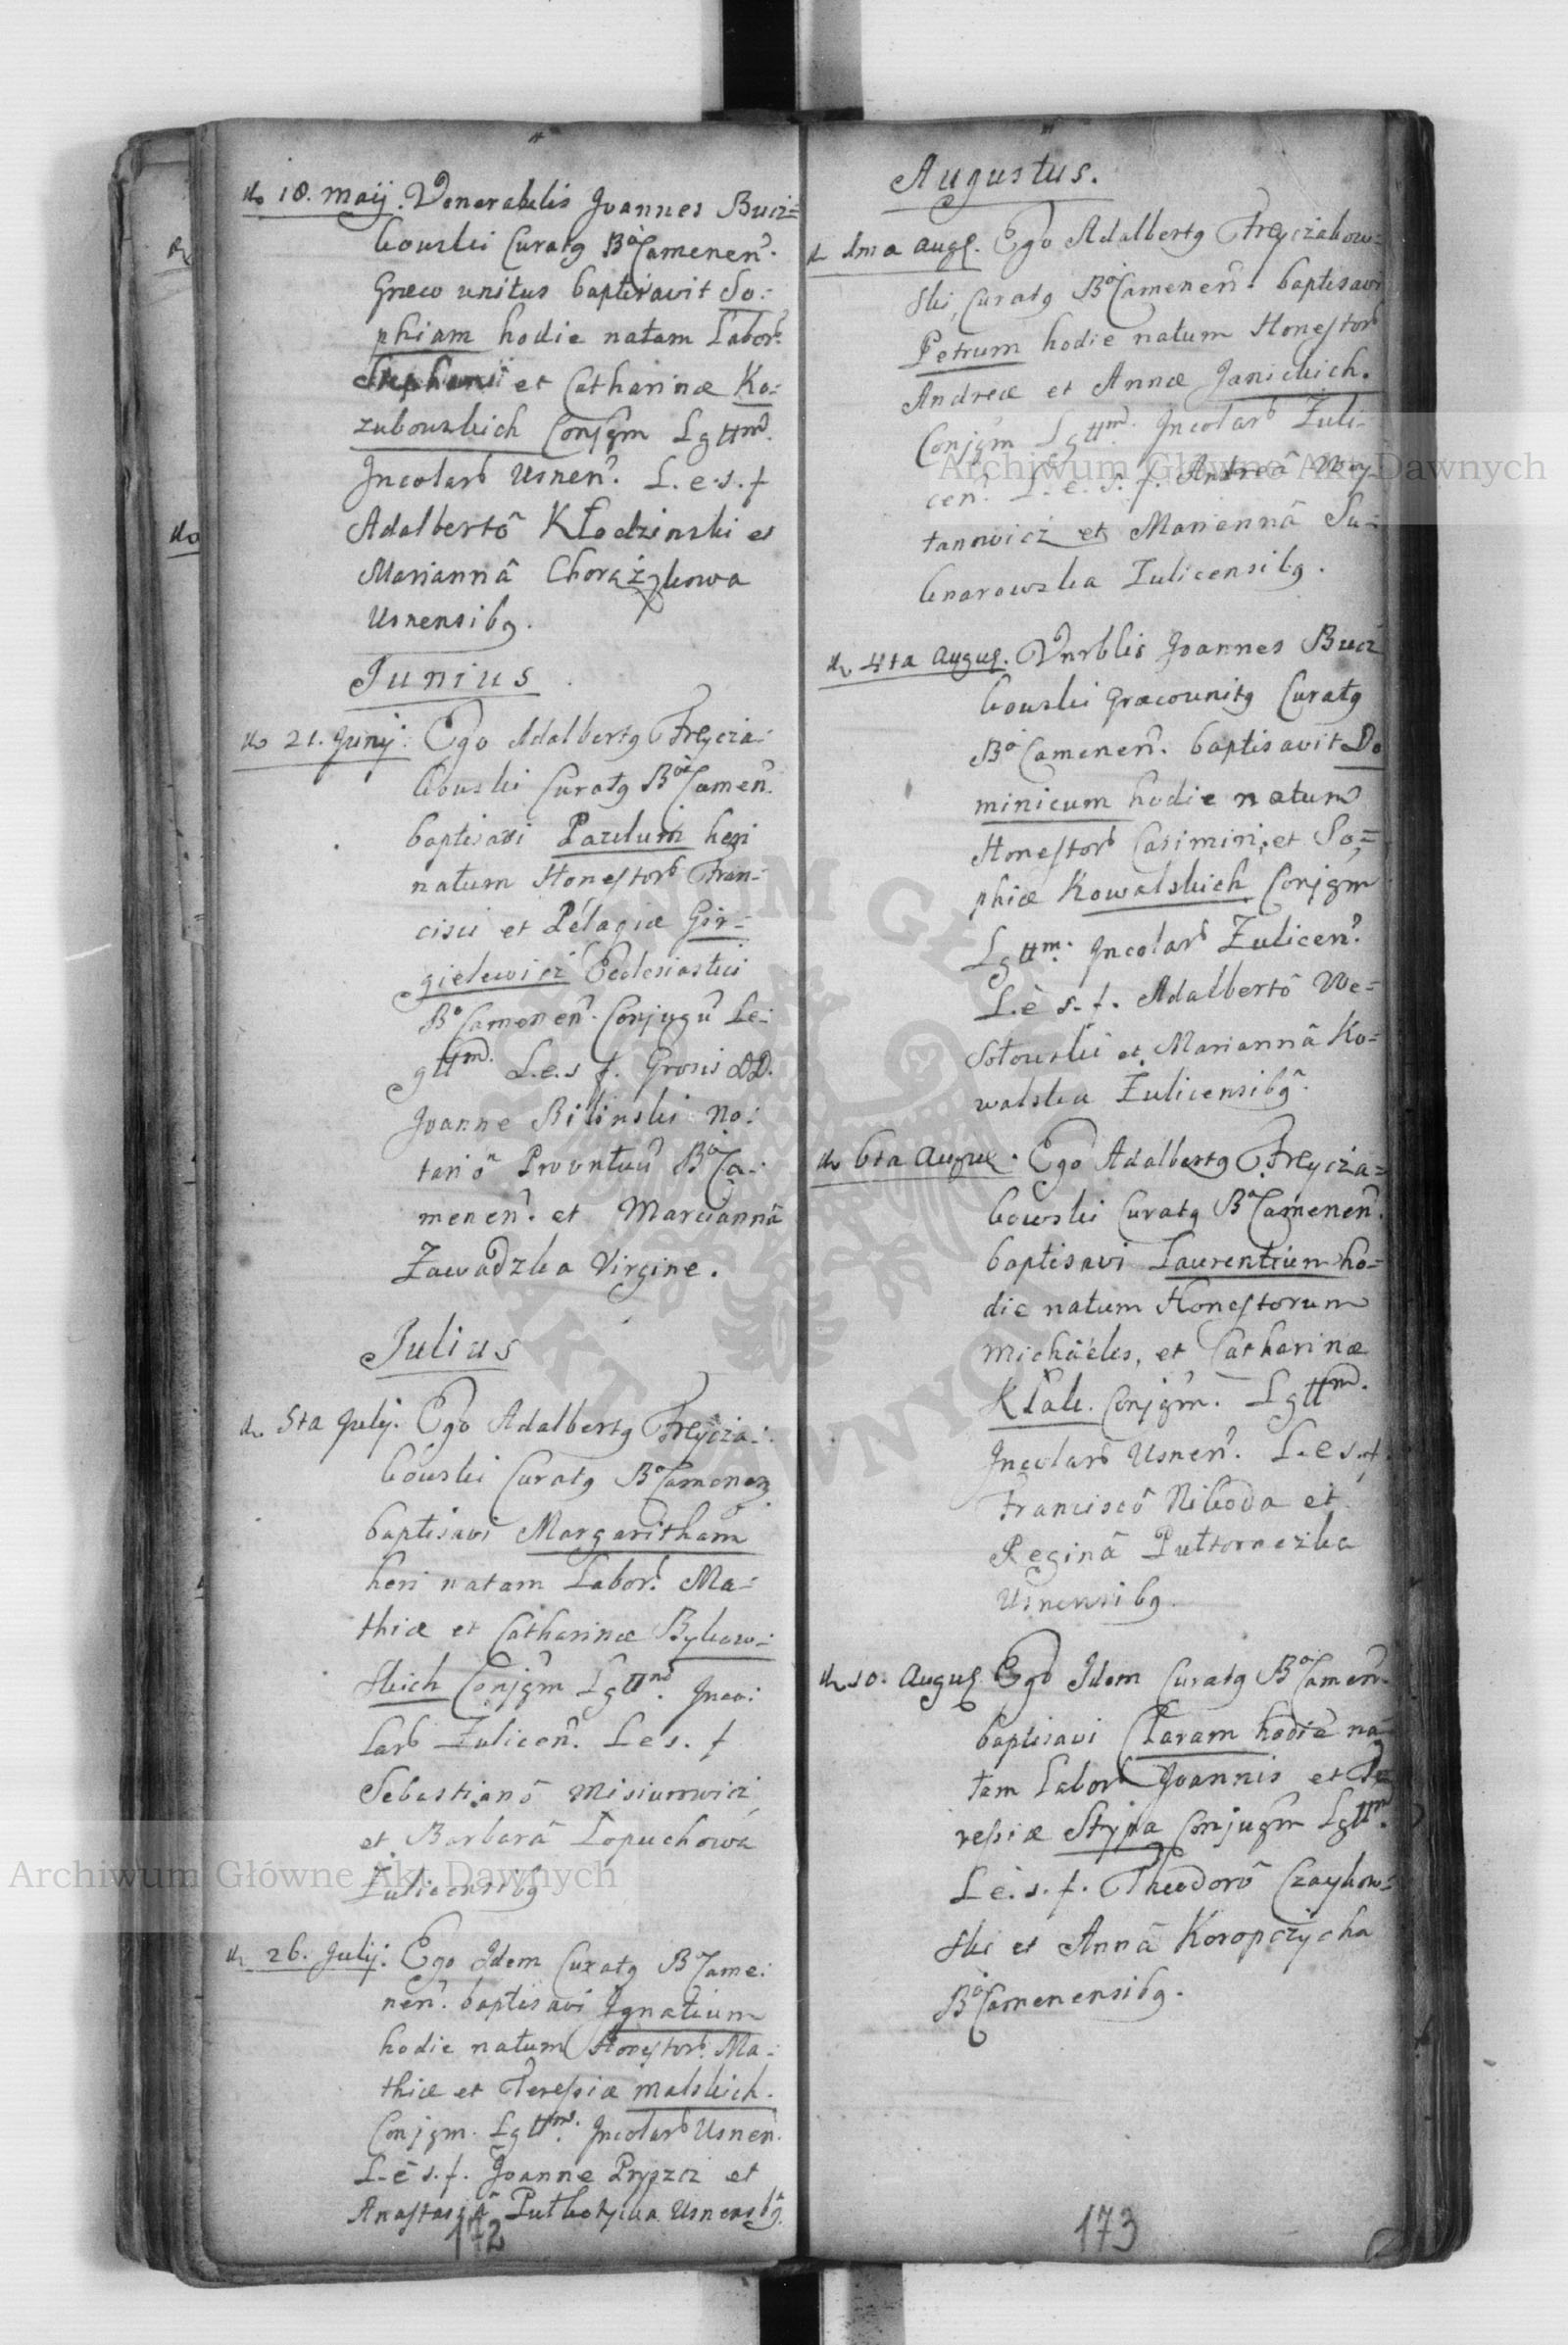 do 18. Maij. Venerabilis Joannes Bucz=
kowski Curatg Bo Camenen.
Græco unitus baptisavit So=
phiam hodie natam Labor.
Stephani et Catharinæ Ko=
zubowskich Conjgm Lgttm.
Incolarb Usnen. L. e. s. f
Adalbertô Kłodzinski et
Mariannâ Chorążykowa
Usnensibg.
Junius
do 21. Junij. Ego Adalbertg Freycza=
kowski Curatg Bo Camen.
baptisavi Paulum heri
natum Honestorb Fran=
cisci et Pelagiæ Gir=
gielewicz Ecclesiastici
Bo Camenen. Conjugū Le=
gttm. L. e. s f. Grosis DD.
Joanne Bilinski No=
tariô Proventuū Bo Ca=
menen. et Mariannâ
Zawadzka Virgine.
Julius
d. 5ta Julij. Ego Adalbertg Freycza=
kowski Curatg Bo Camenen
baptisavi Margaritham
heri natam Labor. Ma=
thiæ et Catharinæ Bykow=
skich Conjgm Lgttm. Inco=
larb Zulicen. L e s. f
Sebastianô Misiurowicz
et Barbarâ Łopuchowa
Zulicensibg
d. 26. Julij. Ego Idem Curatg B Came=
nen. baptisavi Ignatium
hodie natum Honestorb. Ma=
thiæ et Teressiæ Malskich.
Conjgm. Lgttm. Incolarb Usnen.
L. e s. f. Joanne Pryszcz et
Anastasiâ Usnensibg.
172
Augustus.
d. 1ma Aug. Ego Adalbertg Freyczakow=
ski, Curatg Bo Camenen. baptisavi
Petrum hodie natum Honestorb
Andreæ et Annæ Janickich.
Conjgm Lgttm. Incolarb Zuli=
cen. L. e. s. f. Andreâ Woy=
tanowicz et Mariannâ Su=
knarowska Zulicensibg.
d. 4ta Augus. Vnrblis Joannes Bucz
kowski Græcounitg Curatg
Bo Camenen. baptisavit Do
minicum hodie natum
Honestorb Casimiri, et So=
phiæ Kowalskich Conjgm
Lgttm. Incolarb Zulicen.
L. e s. f. Adalbertô We=
sołowski et Mariannâ Ko=
walska Zulicensibg.
do 6ta Augus. Ego Adalbertg Freycza=
kowski Curatg Bo Camenen.
baptisavi Laurentium ho=
die natum Honestorum
Michaëlis, et Catharinæ
Kłak. Conjgm. Lgttm.
Incolarb Usnen. L. e s. f.
Franciscô Nikoda et
Reginâ
Usnensibg.
d. 10. Augus. Ego Idem Curatg Bo Camen.
baptisavi Claram hodie na=
tam Laborb Joannis et Te
ressiæ Stypa Conjugm Lgttm.
L e. s. f. Theodorô Czaykow=
ski et Annâ Koropczycha
Bo Camenensibg.
173
Archiwum Główne Akt Dawnych
Archiwum Główne Akt Dawnych